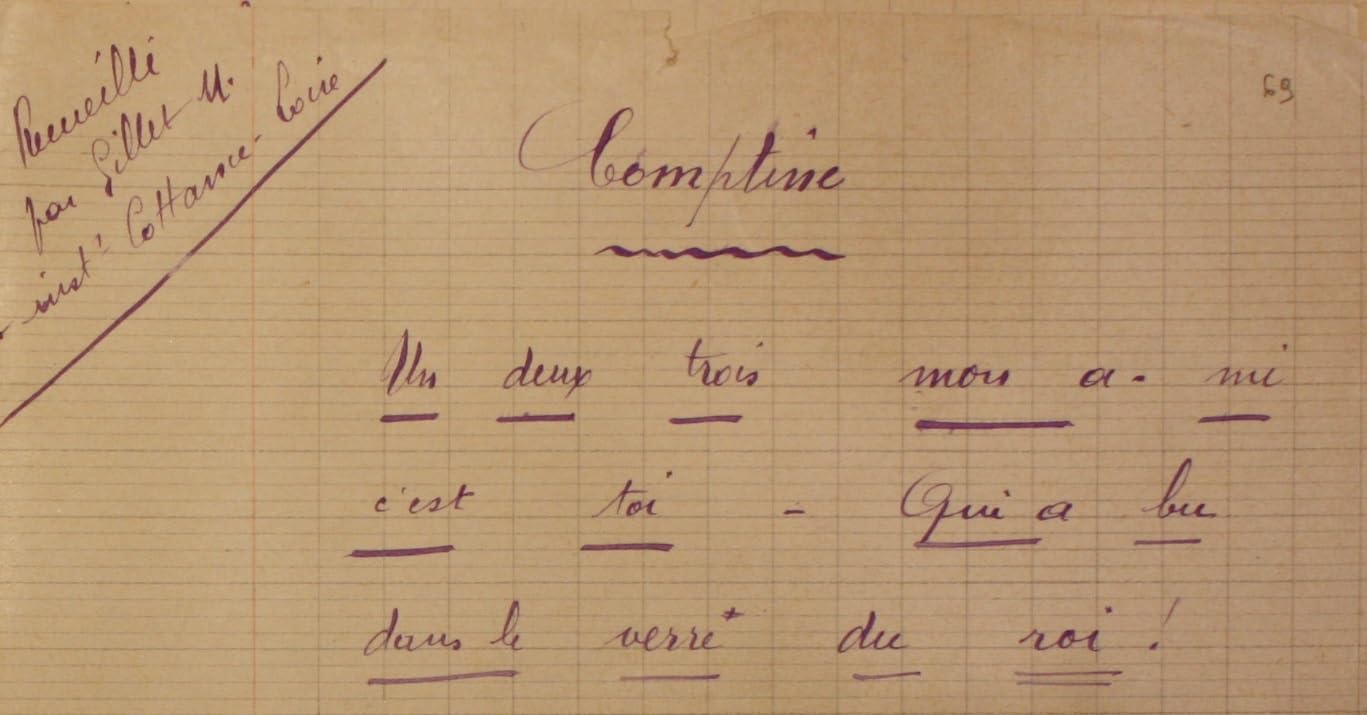 Recueilli
par Gillet M.
inst^r Cottance - Loire
69
Comptine
Un deux trois mon a- mi
c'est toi - Qui a bu
dans le verre+ du roi !